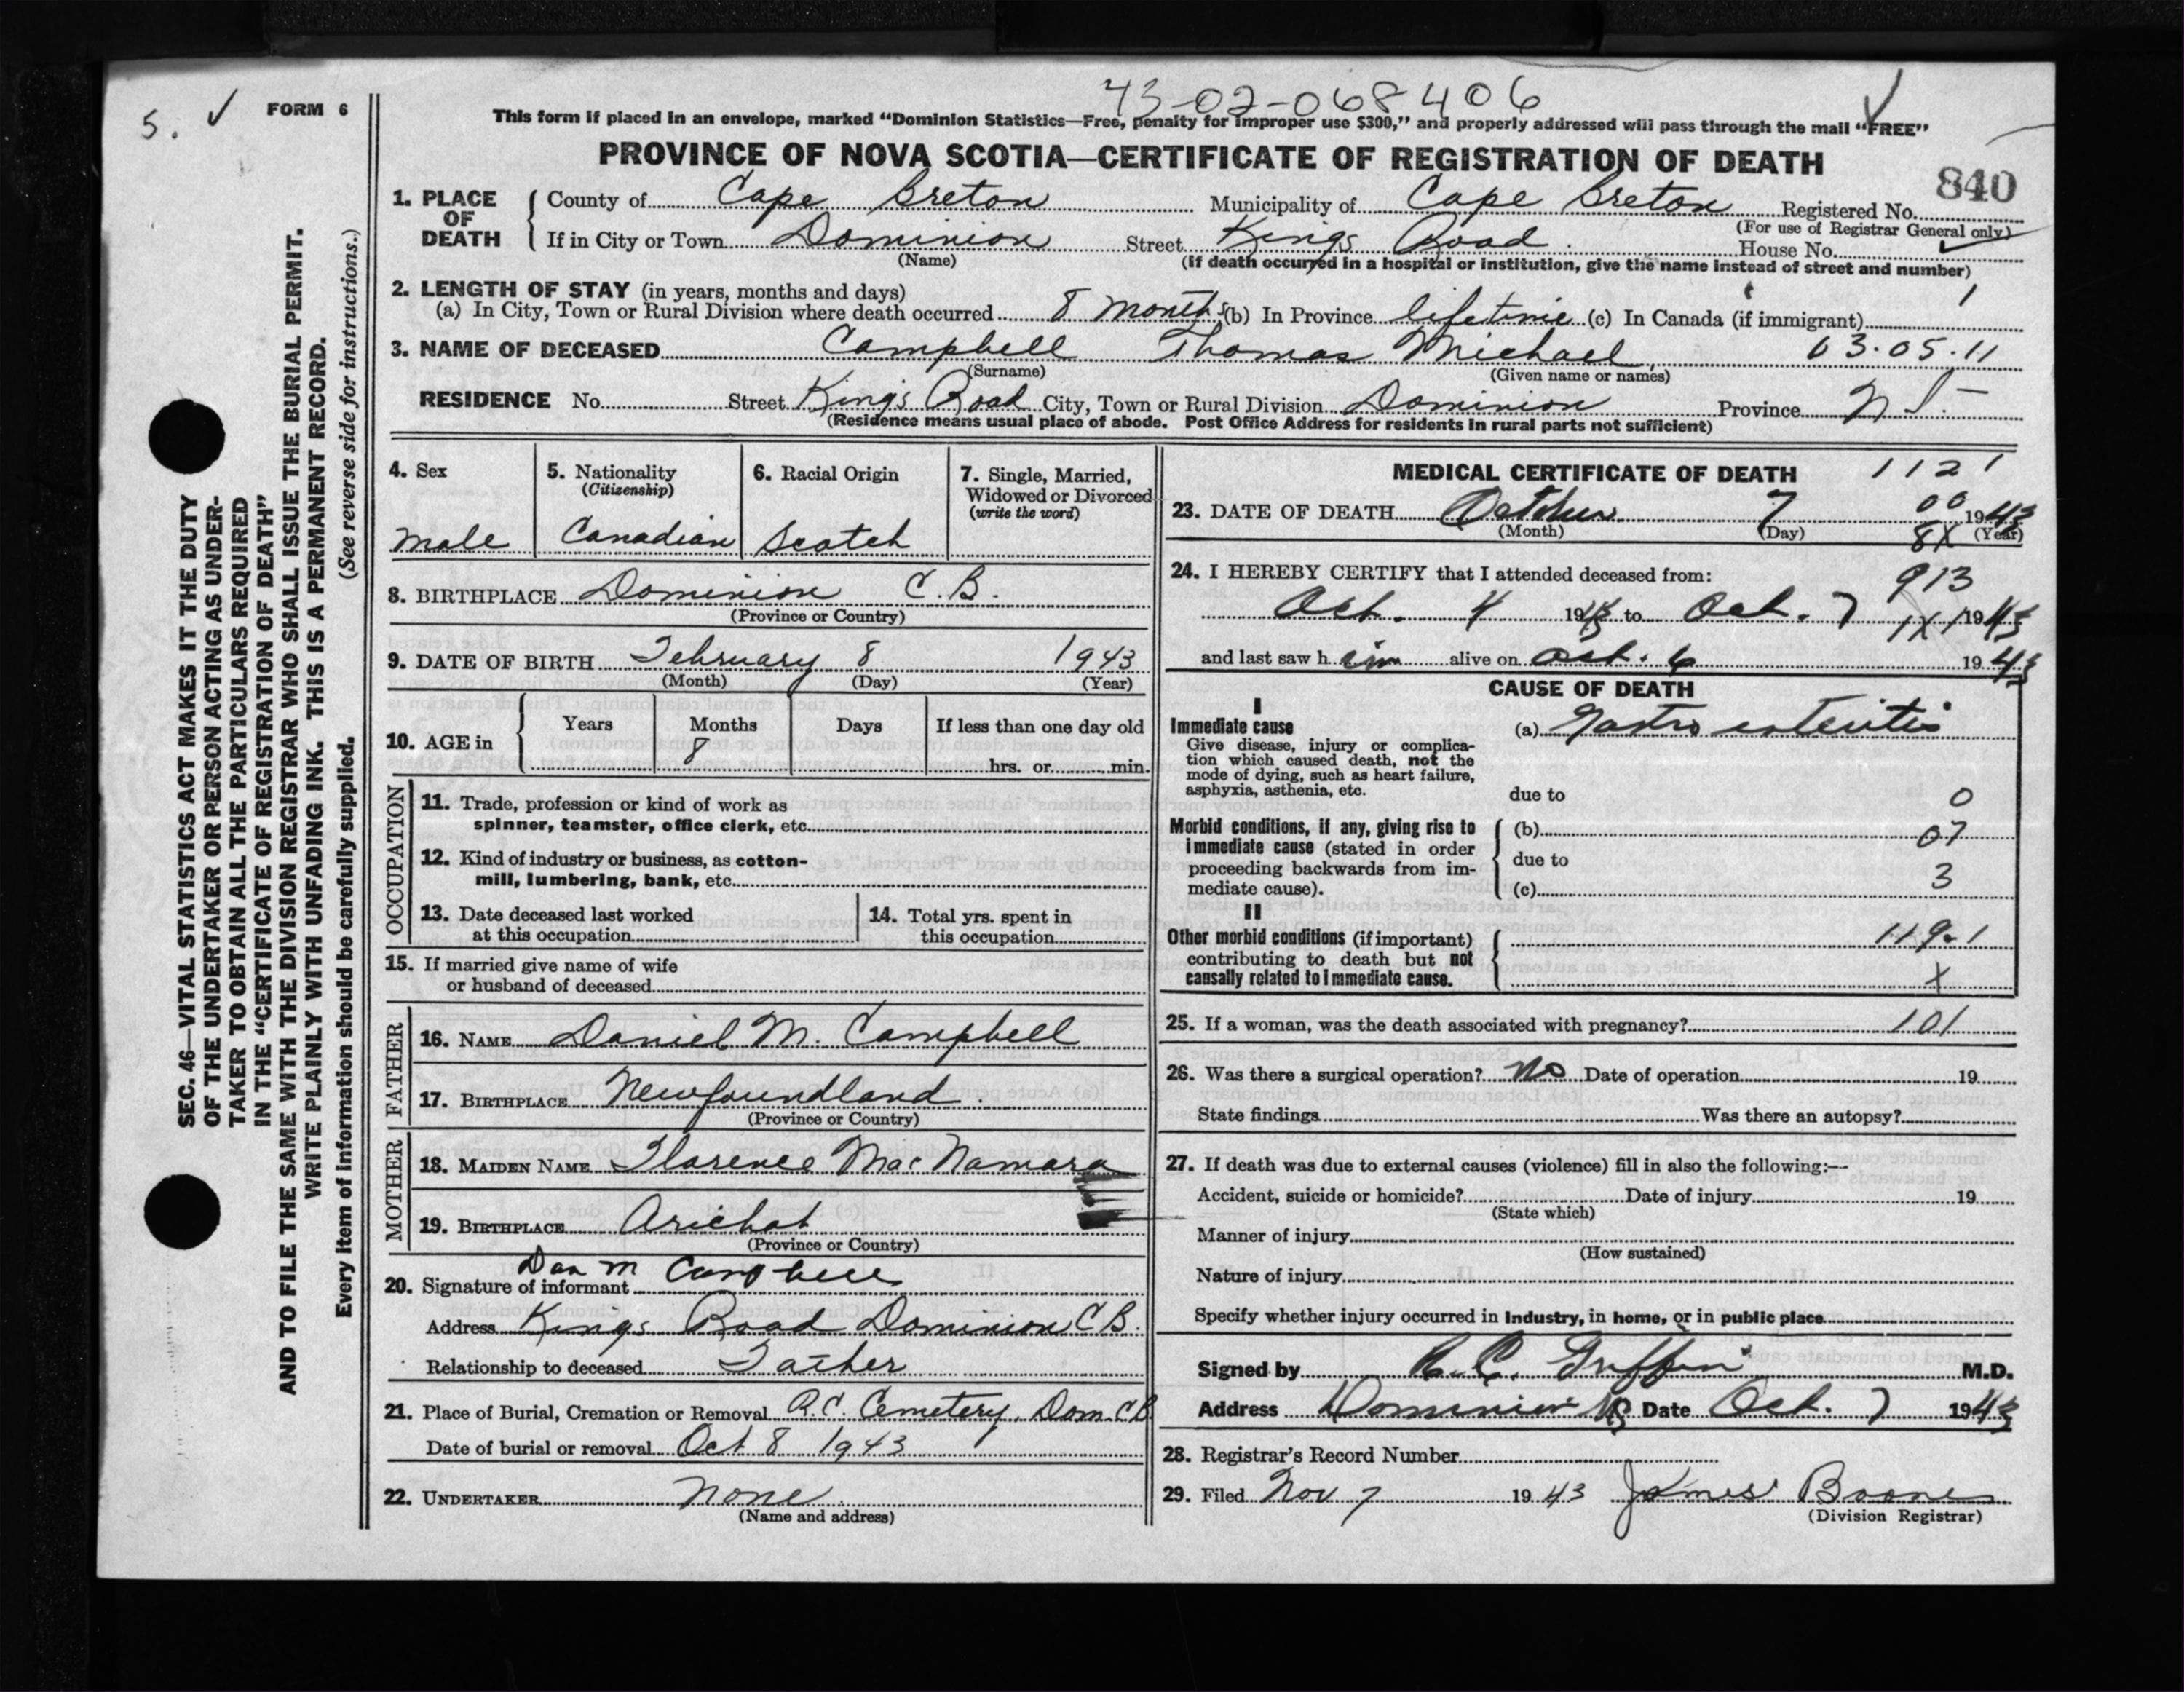 43-02-068406
5. ✓ FORM 6
This form if placed in an envelope, marked “Dominion Statistics—Free, penalty for improper use $300,” and properly addressed will pass through the mail “FREE”
PROVINCE OF NOVA SCOTIA—CERTIFICATE OF REGISTRATION OF DEATH
840
1. PLACE OF DEATH
County of Cape Breton Municipality of Cape Breton Registered No.
(For use of Registrar General only)
If in City or Town Dominion Street Kings Road. House No.
(Name) (If death occurred in a hospital or institution, give the name instead of street and number)
2. LENGTH OF STAY (in years, months and days)
(a) In City, Town or Rural Division where death occurred 8 months (b) In Province lifetime (c) In Canada (if immigrant)
3. NAME OF DECEASED Campbell Thomas Michael 03.05.11
(Surname) (Given name or names)
RESIDENCE No. Street King's Road City, Town or Rural Division Dominion Province N S.
(Residence means usual place of abode. Post Office Address for residents in rural parts not sufficient)
4. Sex
male
5. Nationality
(Citizenship)
Canadian
6. Racial Origin
Scotch
7. Single, Married,
Widowed or Divorced
(write the word)
8. BIRTHPLACE Dominion C.B.
(Province or Country)
9. DATE OF BIRTH February 8 1943
(Month) (Day) (Year)
10. AGE in
Years Months Days If less than one day old
8
hrs. or min.
OCCUPATION
11. Trade, profession or kind of work as
spinner, teamster, office clerk, etc.
12. Kind of industry or business, as cotton-
mill, lumbering, bank, etc.
13. Date deceased last worked
at this occupation
14. Total yrs. spent in
this occupation
15. If married give name of wife
or husband of deceased
FATHER
16. NAME Daniel M. Campbell
17. BIRTHPLACE Newfoundland.
(Province or Country)
MOTHER
18. MAIDEN NAME Florence Mac Namara
19. BIRTHPLACE Arichat
(Province or Country)
20. Signature of informant Dan M Campbell
Address Kings Road Dominion C B.
Relationship to deceased Father
21. Place of Burial, Cremation or Removal R.C. Cemetery. Dom C B
Date of burial or removal Oct 8 1943
22. UNDERTAKER none.
(Name and address)
MEDICAL CERTIFICATE OF DEATH 1121
23. DATE OF DEATH October 7 00 1943
(Month) (Day) 8X (Year)
24. I HEREBY CERTIFY that I attended deceased from: 913
Oct. 4 1943 to Oct. 7 1X1 1943
and last saw him alive on Oct. 6 1943
CAUSE OF DEATH
I
Immediate cause
Give disease, injury or complica-
tion which caused death, not the
mode of dying, such as heart failure,
asphyxia, asthenia, etc.
(a) Gastro enteritis
due to 0
Morbid conditions, if any, giving rise to
immediate cause (stated in order
proceeding backwards from im-
mediate cause).
(b) 07
due to
(c) 3
II
Other morbid conditions (if important)
contributing to death but not
causally related to immediate cause.
119-1
X
25. If a woman, was the death associated with pregnancy? 101
26. Was there a surgical operation? No Date of operation 19
State findings Was there an autopsy?
27. If death was due to external causes (violence) fill in also the following:—
Accident, suicide or homicide? Date of injury 19
(State which)
Manner of injury
(How sustained)
Nature of injury
Specify whether injury occurred in industry, in home, or in public place
Signed by C. Griffin M.D.
Address Dominion NS Date Oct. 7 1943
28. Registrar's Record Number
29. Filed Nov 7 1943 James Boone
(Division Registrar)
SEC. 46—VITAL STATISTICS ACT MAKES IT THE DUTY
OF THE UNDERTAKER OR PERSON ACTING AS UNDER-
TAKER TO OBTAIN ALL THE PARTICULARS REQUIRED
IN THE “CERTIFICATE OF REGISTRATION OF DEATH”
AND TO FILE THE SAME WITH THE DIVISION REGISTRAR WHO SHALL ISSUE THE BURIAL PERMIT.
WRITE PLAINLY WITH UNFADING INK. THIS IS A PERMANENT RECORD.
Every item of information should be carefully supplied. (See reverse side for instructions.)